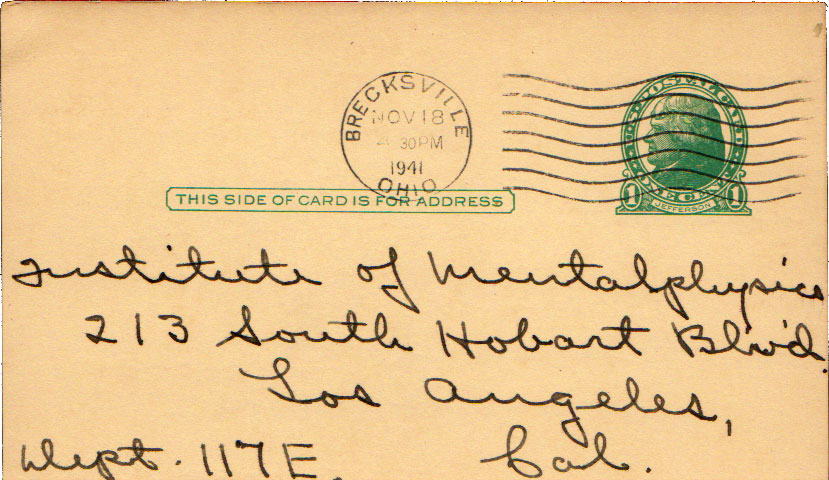 BRECKSVILLE
NOV 18
4 30PM
1941
OHIO
U.S. POSTAL CARD
1 ONE CENT 1
JEFFERSON
THIS SIDE OF CARD IS FOR ADDRESS
Institute of Mentalphysics
213 South Hobart Blvd.
Los Angeles,
Dept. 117E. Cal.